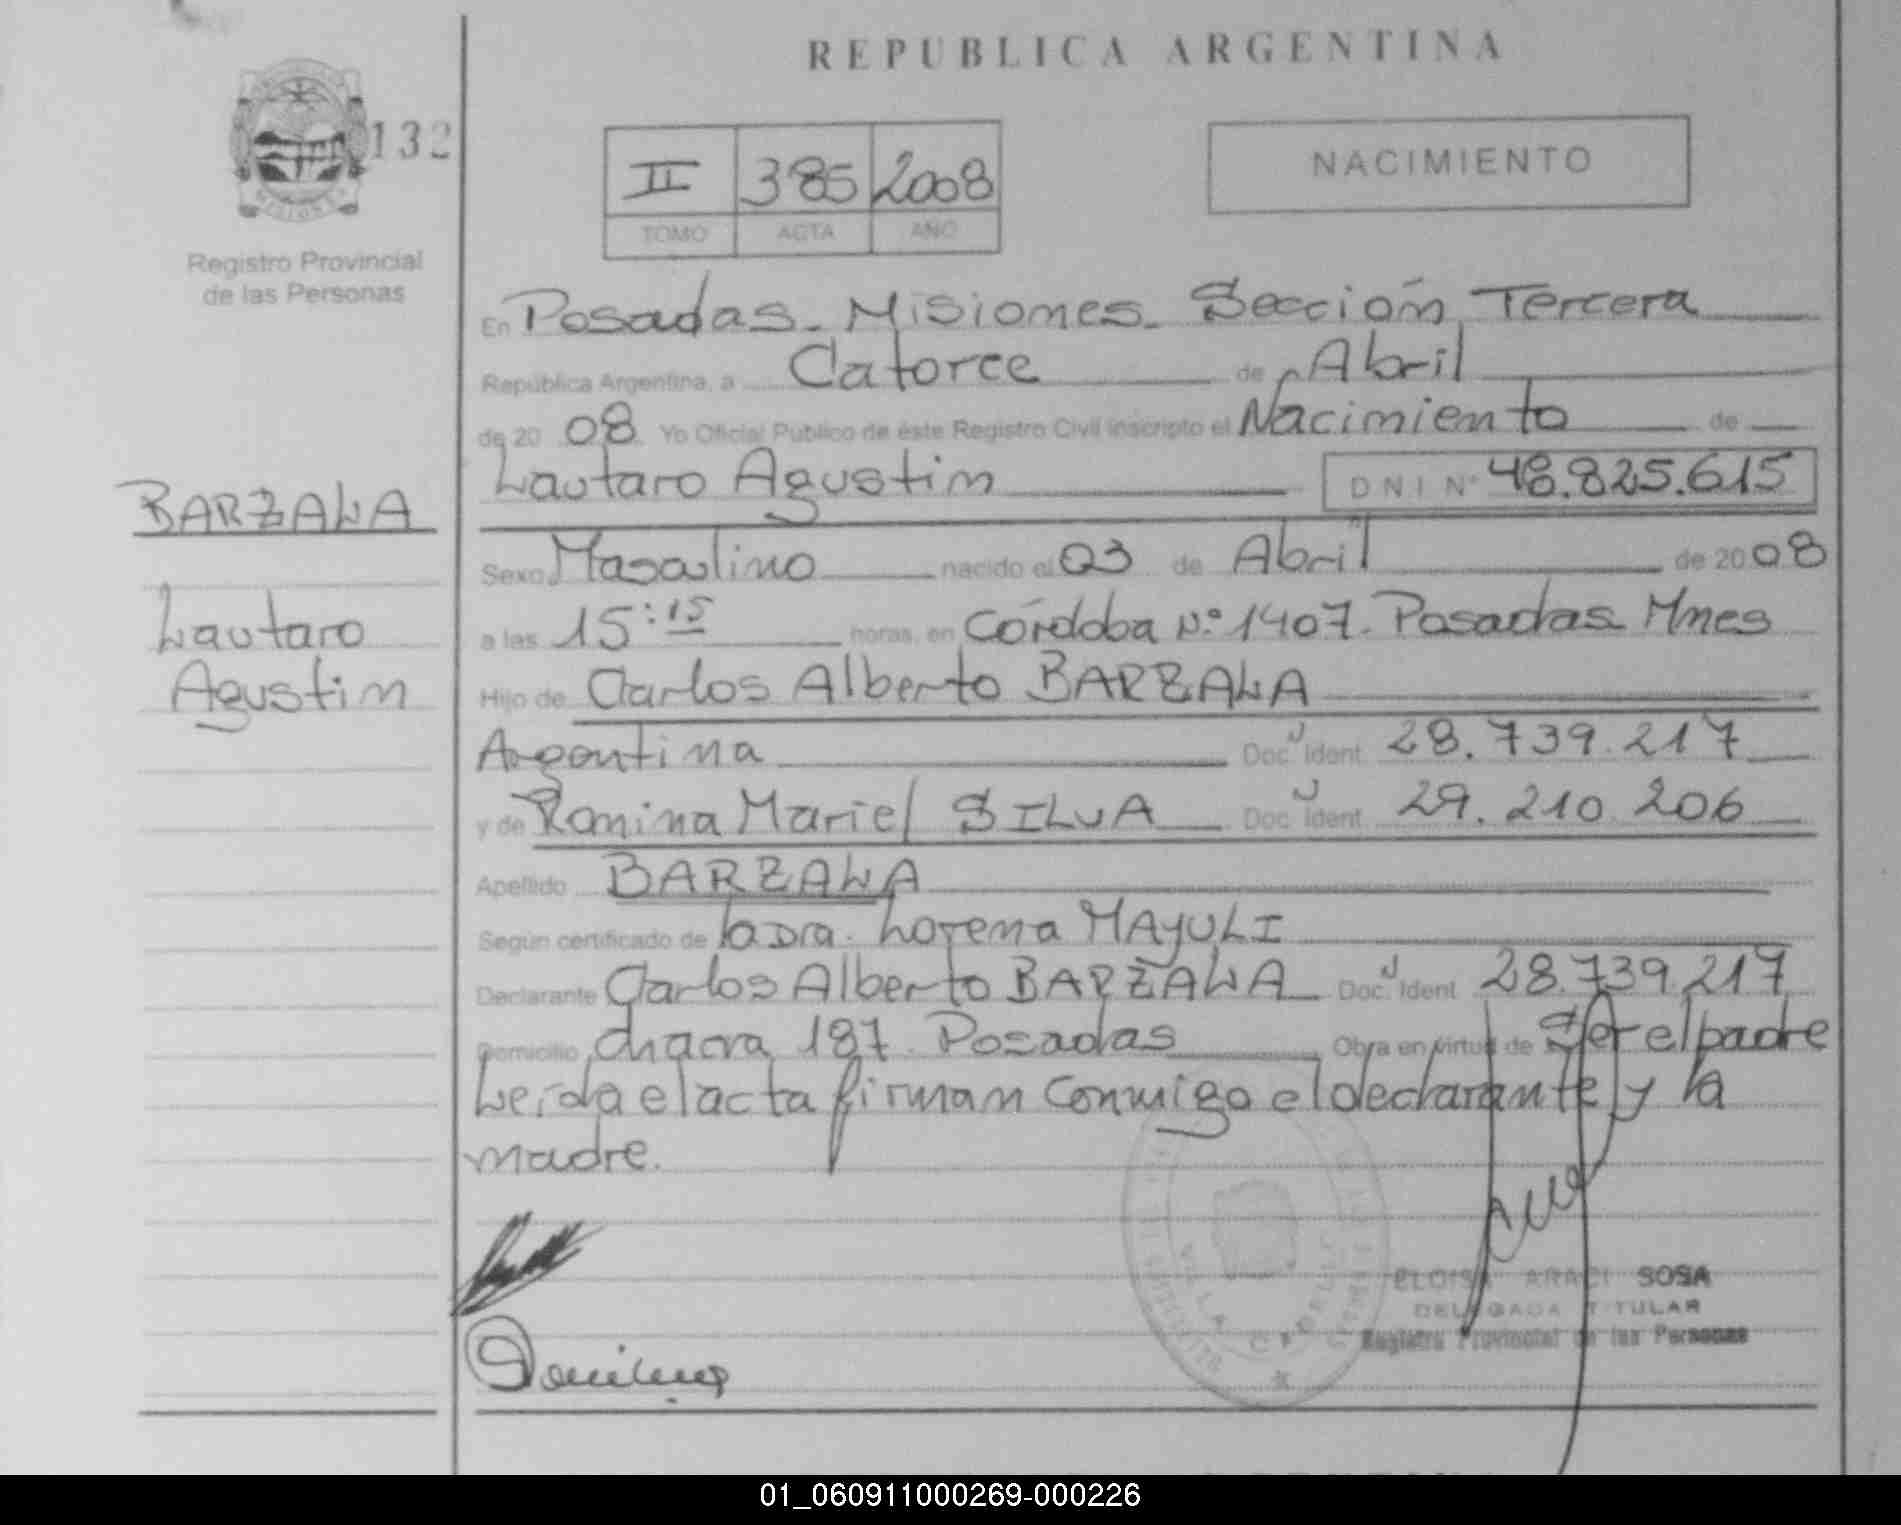 REPUBLICA ARGENTINA
132
MISIONES
Registro Provincial
de las Personas
II 385 2008
TOMO ACTA AÑO
NACIMIENTO
En Posadas - Misiones - Sección Tercera
República Argentina, a Catorce de Abril
de 20 08 Yo Oficial Público de éste Registro Civil inscripto el Nacimiento de
Lautaro Agustin DNI Nº 48.825.615
BARZALA
Lautaro
Agustin
Sexo Masculino nacido el 03 de Abril de 20 08
a las 15:15 horas, en Córdoba Nº 1407. Posadas Mnes
Hijo de Carlos Alberto BARZALA
Argentina Doc. Ident. 28.739.217
y de Romina Mariel SILVA Doc. Ident. 29.210.206
Apellido BARZALA
Según certificado de la Dra. Lorena MAYULI
Declarante Carlos Alberto BARZALA Doc. Ident. 28.739.217
Domicilio chacra 187. Posadas Obra en virtud de Ser el padre
Leída el acta firman conmigo el declarante y la
madre.
ELOISA ARACI SOSA
DELEGADA TITULAR
Registro Provincial de las Personas
01_060911000269-000226